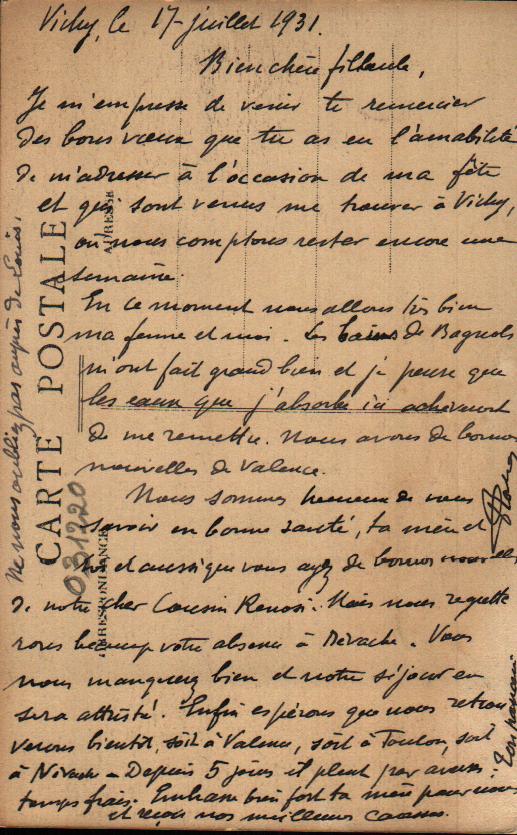 Vichy, le 17 juillet 1931.
Bien chère fillaule,
Je m'empresse de venir te remercier
des bons vœux que tu as eu l'amabilité
de m'adresser à l'occasion de ma fête
et qui sont venus me trouver à Vichy,
où nous comptons rester encore une
semaine.
En ce moment nous allons très bien
ma femme et moi. Les bains de Bagnols
m'ont fait grand bien et je pense que
les eaux que j'absorbe ici achèveront
de me remettre. Nous avons de bonnes
nouvelles de Valence.
Nous sommes heureux de vous
savoir en bonne santé, ta mère et
toi et aussi que vous ayez de bonnes nouvelles
de notre cher Cousin. Mais nous regrette
rons beaucoup votre absence à Névache. Vous
nous manquerez bien et notre séjour en
sera attristé. Enfin espérons que nous retrou
verons bientôt, soit à Valence, soit à Toulon, soit
à Névache - Depuis 5 jours il pleut par averses.
temps frais. Embrasse bien fort ta mère pour nous
et reçois nos meilleures caresses.
Ton parrain
Ne nous oubliez pas auprès de Louis.
CARTE POSTALE
ADRESSE
CORRESPONDANCE
031220